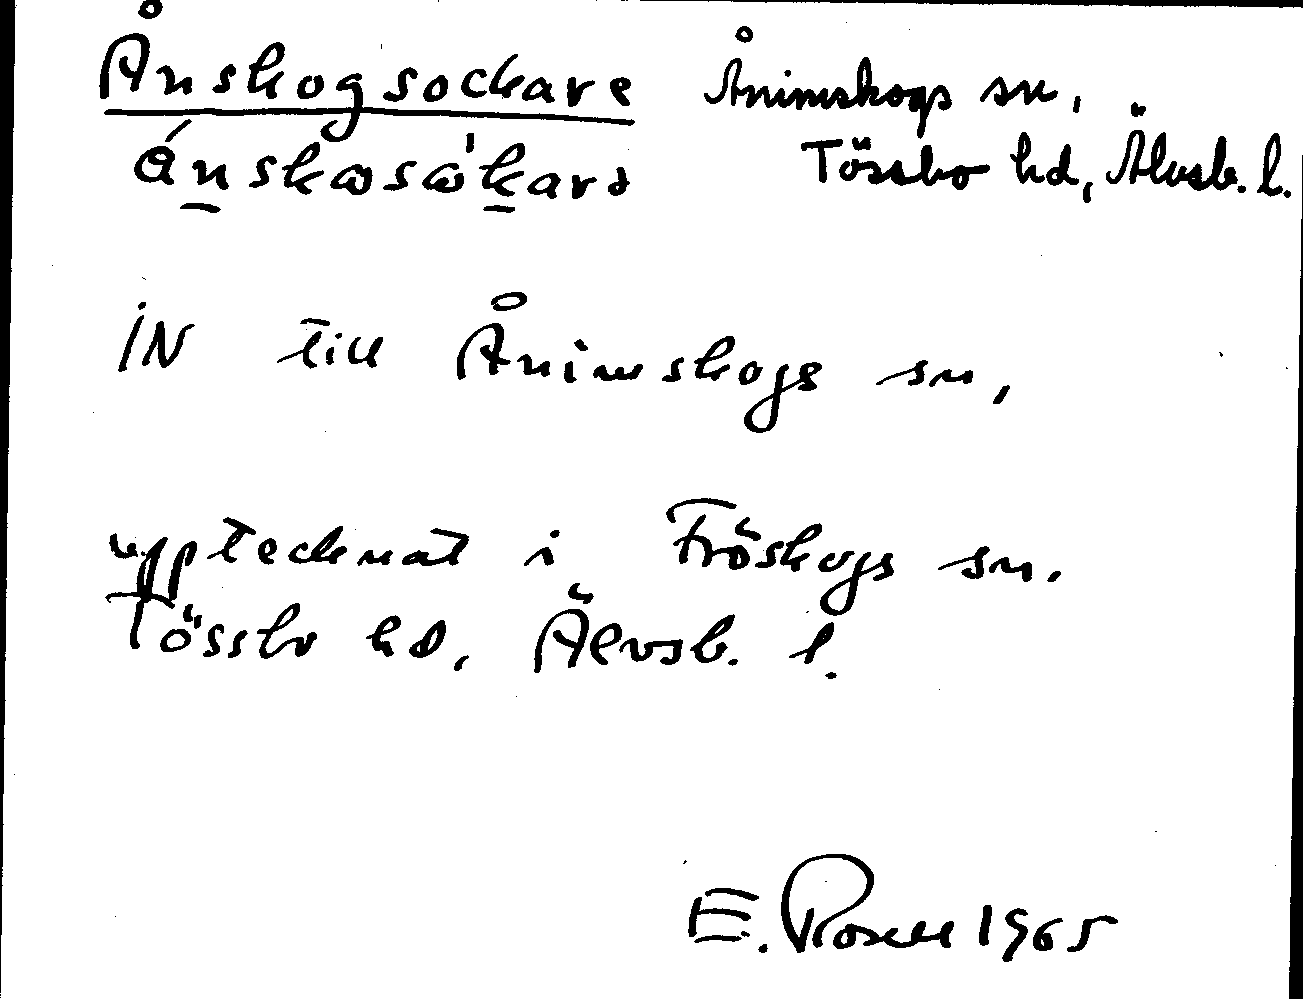 Ånskogsockare Ånimskogs sn,
Tössbo hd, Älvsb. l.
IN till Ånimskogs sn,
upptecknat i Fröskogs sn.
Tössbo hd, Älvsb. l.
E. Rosell 1965